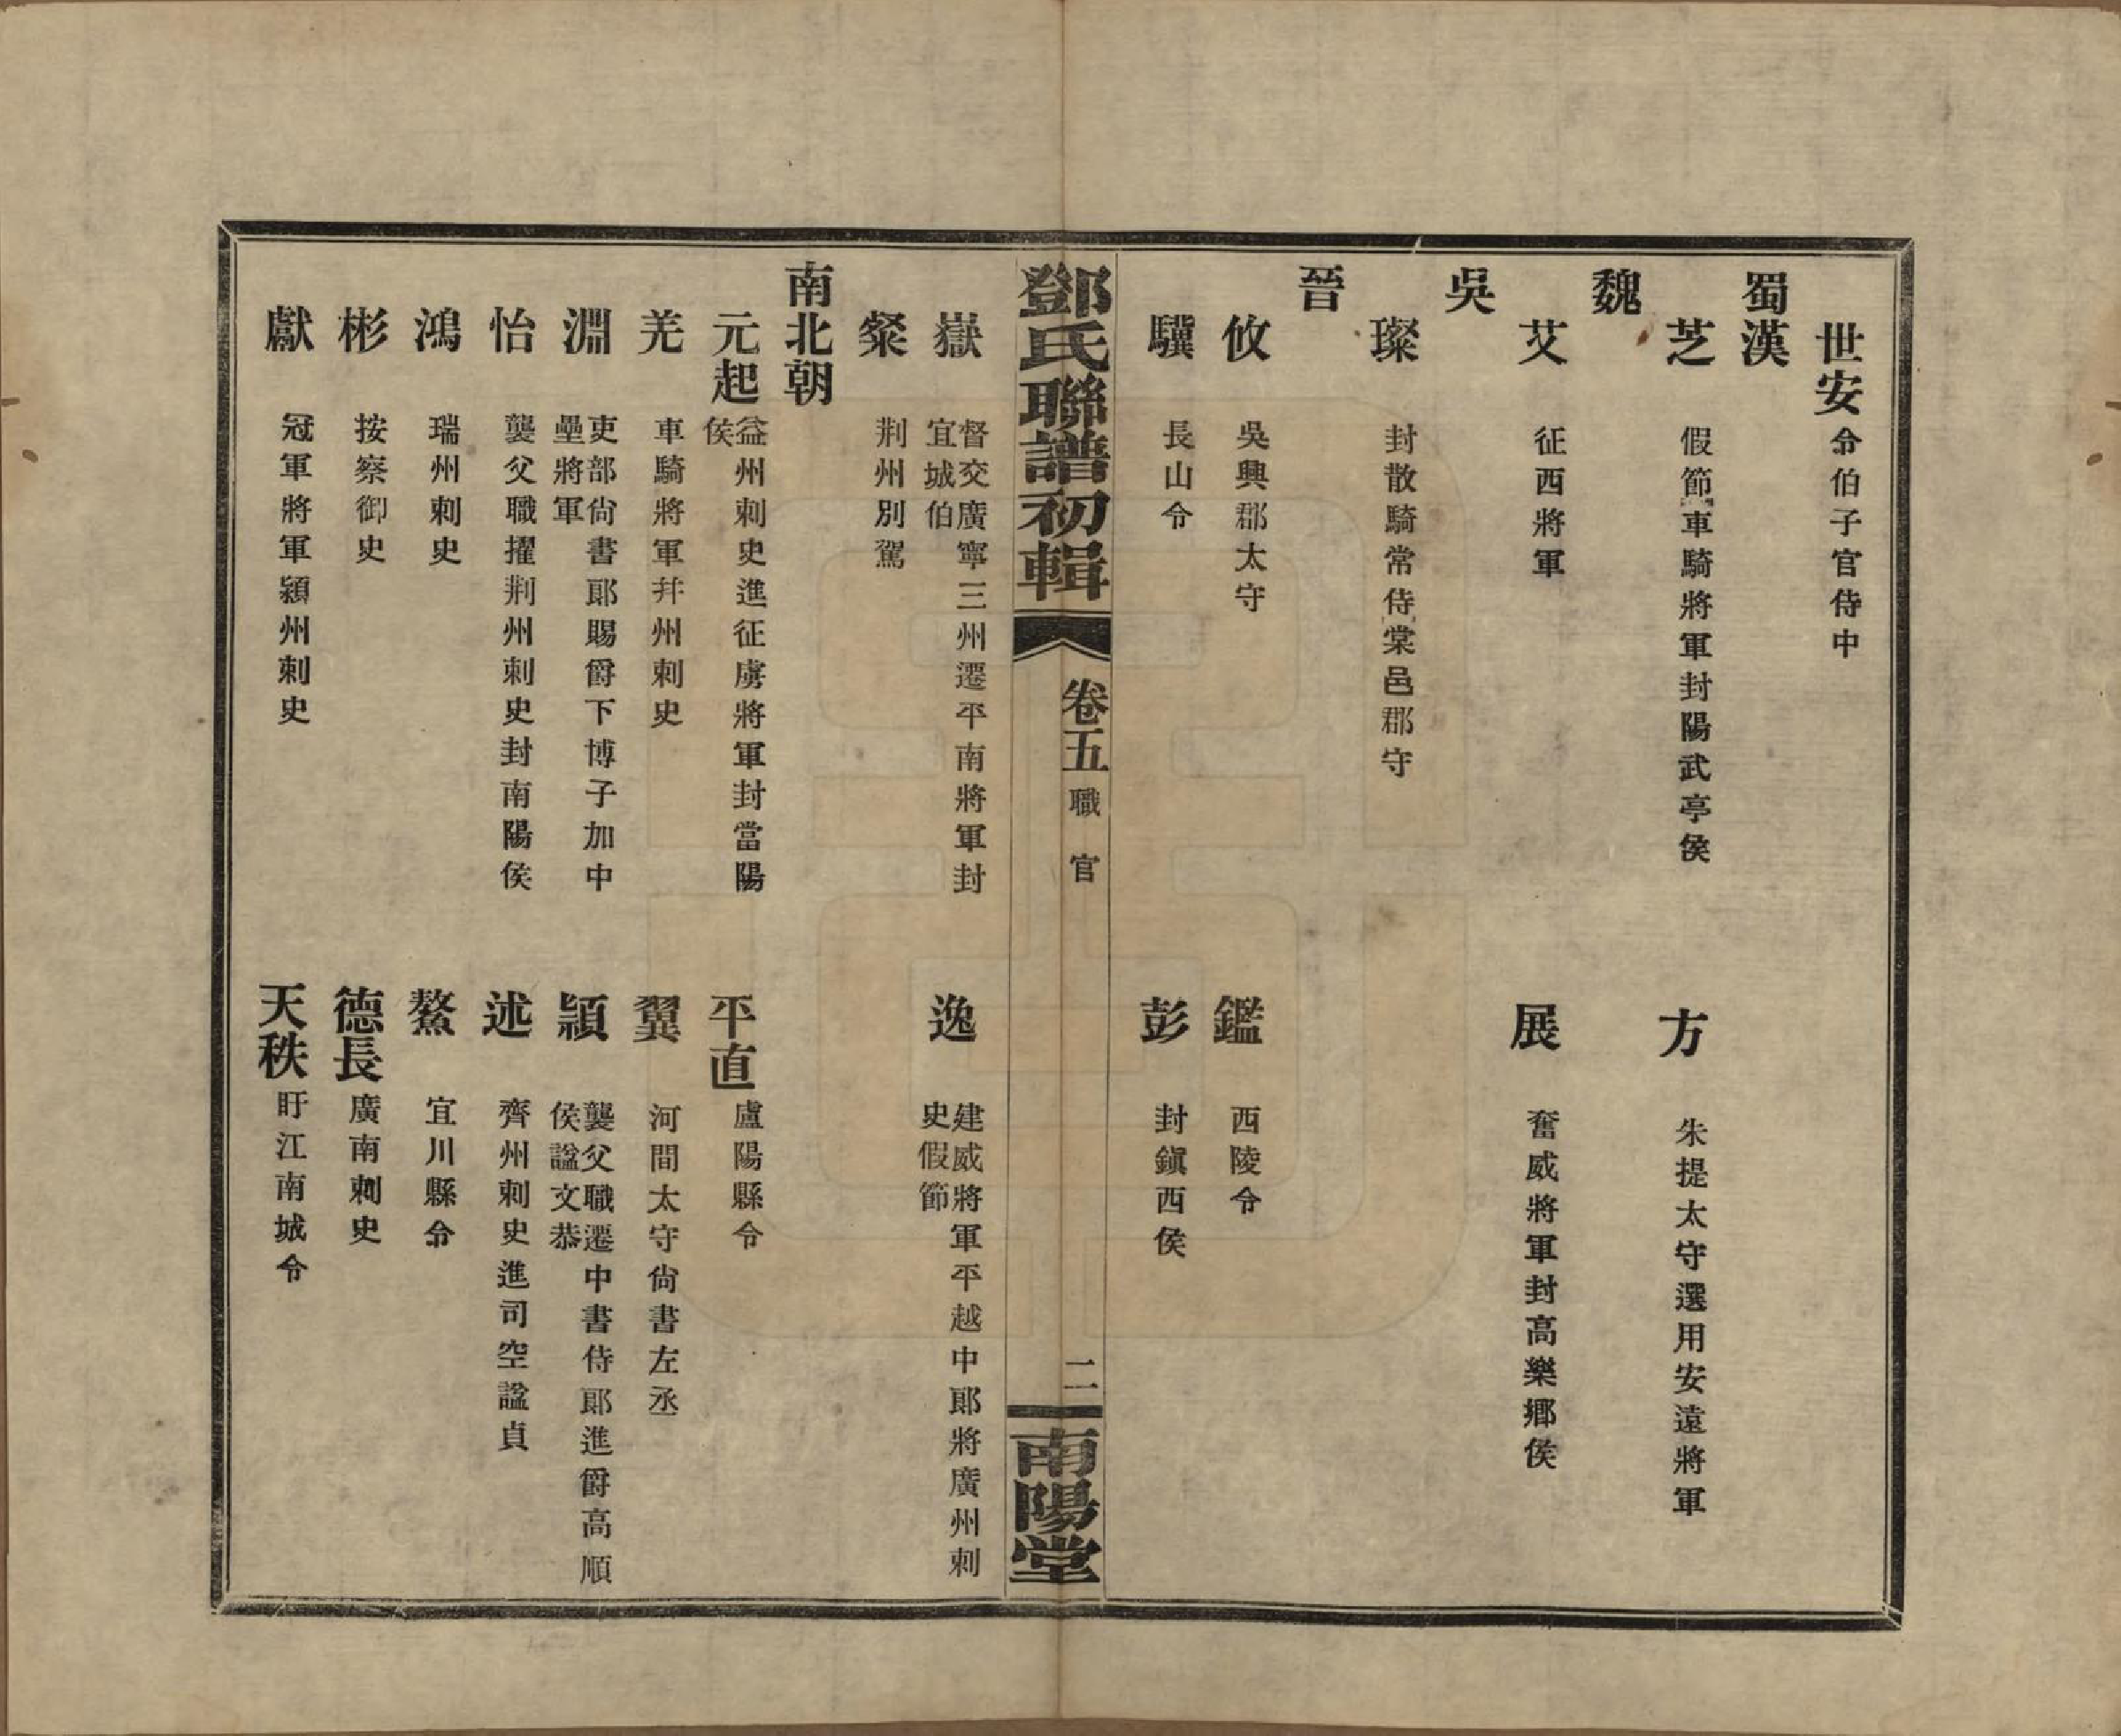 世安 令伯子官侍中
蜀漢
芝 假節車騎將軍封陽武亭侯
方 朱提太守選用安遠將軍
魏
艾 征西將軍
展 奮威將軍封高樂鄉侯
吳
璨 封散騎常侍棠邑郡守
晉
攸 吳興郡太守
鑑 西陵令
驥 長山令
彭 封鎭西侯
鄧氏聯譜初輯 卷五 職官 二 南陽堂
嶽 督交廣寧三州遷平南將軍封
宜城伯
逸 建威將軍平越中郎將廣州刺
史假節
粲 荆州別駕
南北朝
元起 益州刺史進征虜將軍封當陽
侯
平直 盧陽縣令
羌 車騎將軍幷州刺史
翼 河間太守尙書左丞
淵 吏部尙書郎賜爵下博子加中
壘將軍
頴 襲父職遷中書侍郎進爵高順
侯諡文恭
怡 襲父職擢荆州刺史封南陽侯
述 齊州刺史進司空諡貞
鴻 瑞州刺史
鰲 宜川縣令
彬 按察御史
德長 廣南刺史
獻 冠軍將軍潁州刺史
天秩 盱江南城令